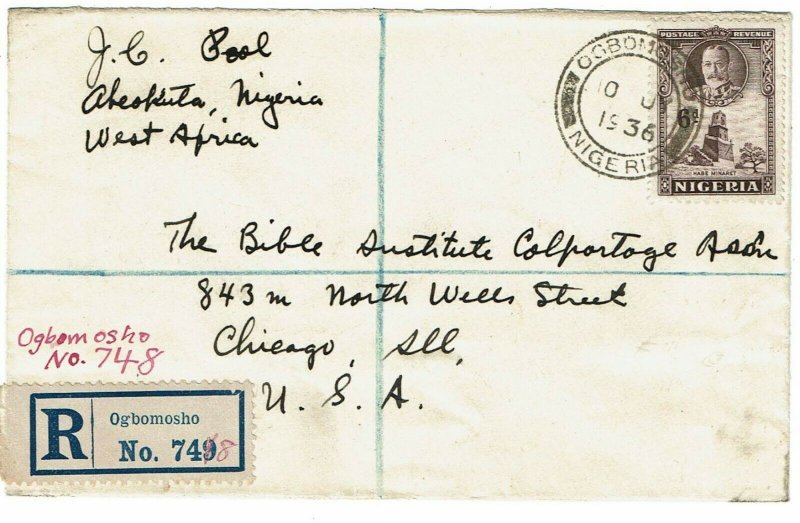 J. C. Pool
Abeokuta, Nigeria
West Africa
OGBOMOSHO
10 J
1936
NIGERIA
POSTAGE REVENUE
6d
HABE MINARET
NIGERIA
The Bible Institute Colportage Ass'n
843 m North Wells Street
Chicago, Ill.
U. S. A.
Ogbomosho
No. 748
R
Ogbomosho
No. 749 8